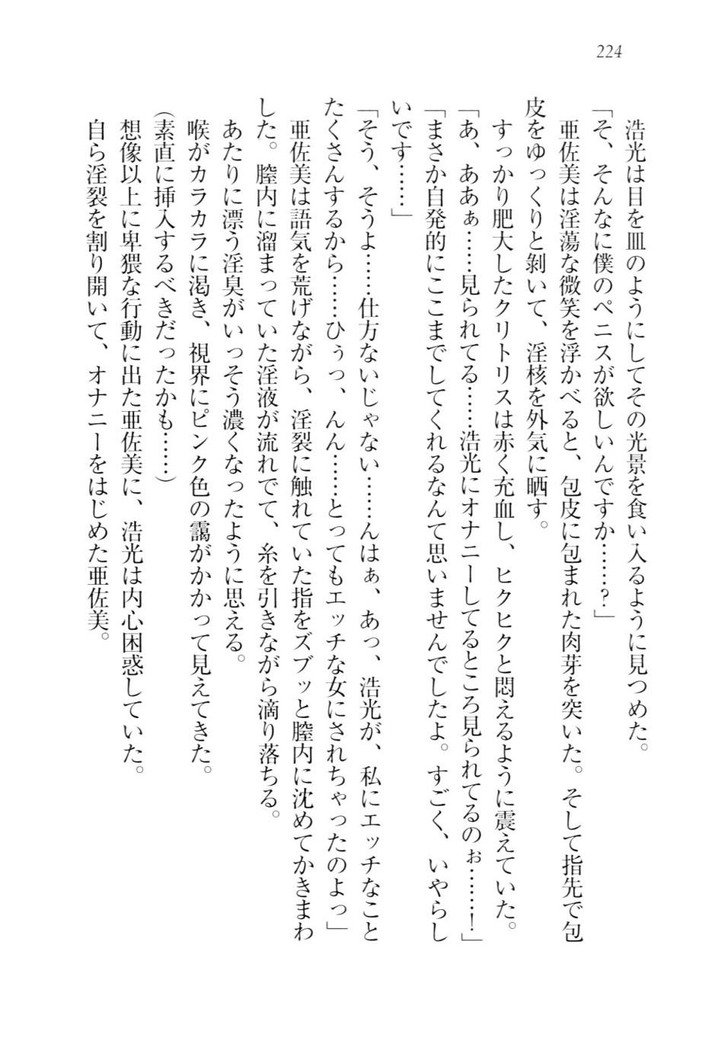 224
浩光は目を皿のようにしてその光景を食い入るように見つめた。
「そ、そんなに僕のペニスが欲しいんですか……？」
亜佐美は淫蕩な微笑を浮かべると、包皮に包まれた肉芽を突いた。そして指先で包
皮をゆっくりと剥いて、淫核を外気に晒す。
すっかり肥大したクリトリスは赤く充血し、ヒクヒクと悶えるように震えていた。
「あ、ああぁ……見られてる……浩光にオナニーしてるところ見られてるのぉ……！」
「まさか自発的にここまでしてくれるなんて思いませんでしたよ。すごく、いやらし
いです……」
「そう、そうよ……仕方ないじゃない……んはぁ、あっ、浩光が、私にエッチなこと
たくさんするから……ひぅっ、んん……とってもエッチな女にされちゃったのよっ」
亜佐美は語気を荒げながら、淫裂に触れていた指をズブッと膣内に沈めてかきまわ
した。膣内に溜まっていた淫液が流れでて、糸を引きながら滴り落ちる。
あたりに漂う淫臭がいっそう濃くなったように思える。
喉がカラカラに渇き、視界にピンク色の靄がかかって見えてきた。
（素直に挿入するべきだったかも……）
想像以上に卑猥な行動に出た亜佐美に、浩光は内心困惑していた。
自ら淫裂を割り開いて、オナニーをはじめた亜佐美。